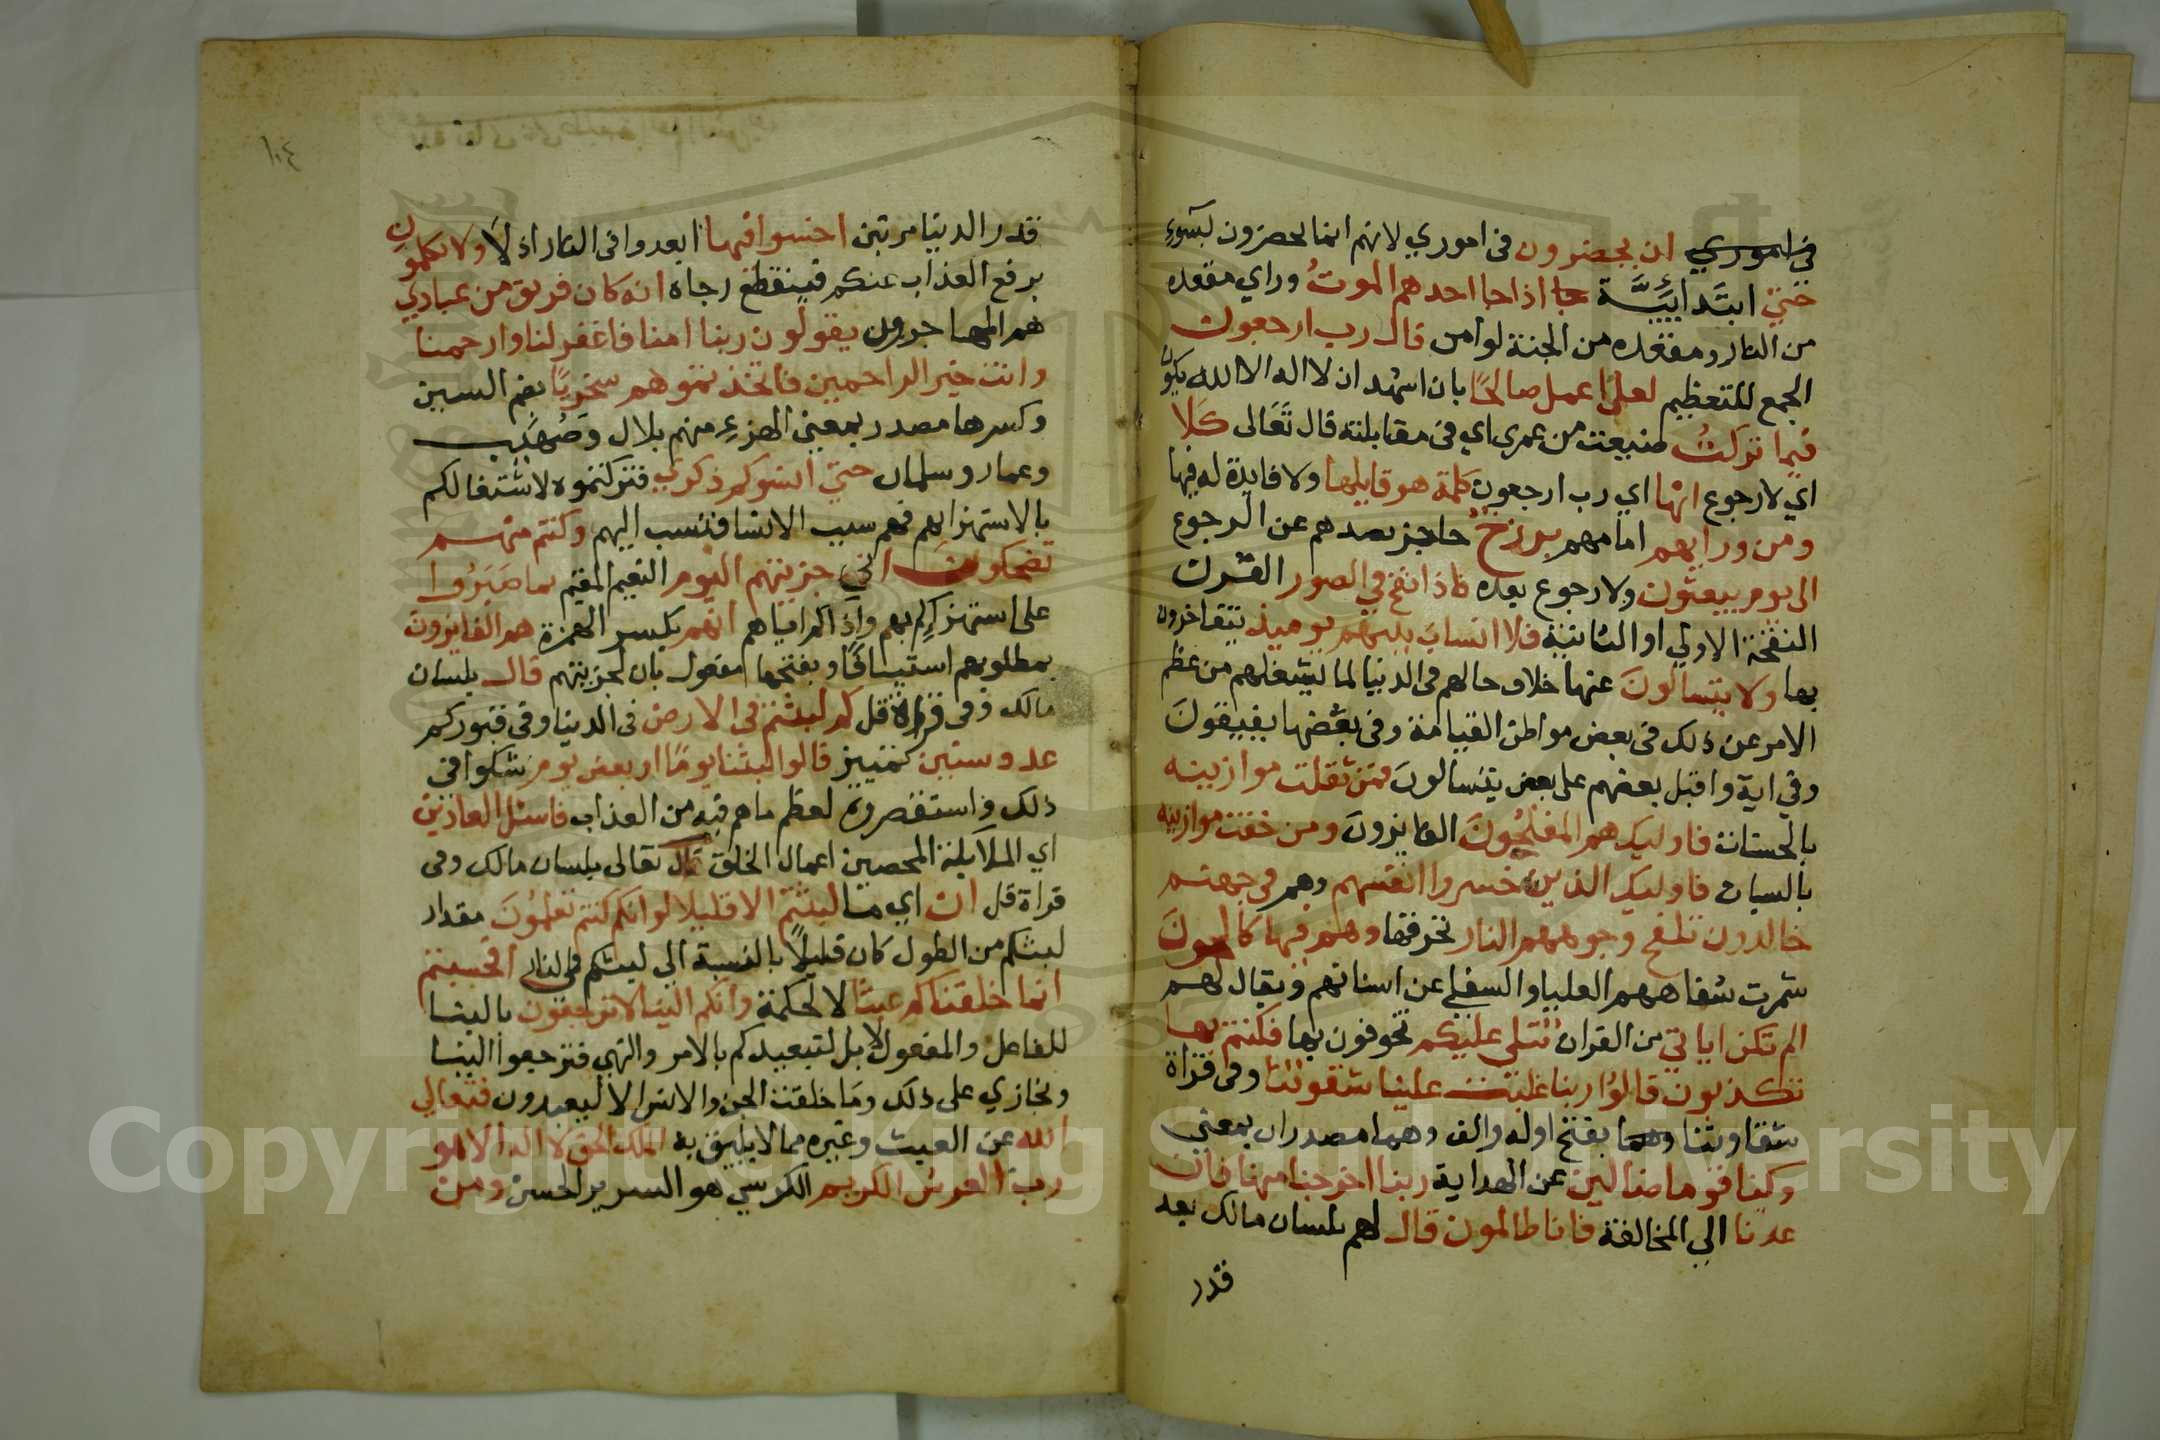 في اموري ان يحضرون في اموري لانهم انما يحضرون لسوء
حتي ابتدايية جا اذا جا احدهم الموت وراي مقعده
من النار ومقعده من الجنة لو امن قال رب ارجعون
الجمع للتعظيم لعلي اعمل صالحا بان اشهد ان لا اله الا الله يكون
فيما تركت ضيعت من عمري اي في مقابلته قال تعالى كلا
اي لا رجوع انها اي رب ارجعون كلمة هو قايلها ولا فايدة له فيها
ومن ورايهم امامهم برزخ حاجز يصدهم عن الرجوع
الي يوم يبعثون ولا رجوع بعده فاذا نفخ في الصور القرن
النفخة الاولي او الثانية فلا انساب بينهم يوميذ يتفاخرون
بها ولا يتسالون عنها خلاف حالهم في الدنيا لما يشغلهم من عظم
الامر عن ذلك في بعض مواطن القيامة وفي بعضها يفيقون
وفي اية واقبل بعضهم علي بعض يتسالون فمن ثقلت موازينه
بالحسنات فاوليك هم المفلحون الفايزون ومن خفت موازينه
بالسيات فاوليك الذين خسروا انفسهم وهم في جهنم
خالدون تلفح وجوههم النار تحرقها وهم فيها كالحون
شمرت شفاههم العليا والسفلي عن اسنانهم ويقال لهم
الم تكن اياتي من القران تتلي عليكم تخوفون بها فكنتم بها
تكذبون قالوا ربنا غلبت علينا شقوتنا وفي قراة
شقاوتنا وهما بفتح اوله والف وهما مصدران بمعني
وكنا قوما ضالين عن الهداية ربنا اخرجنا منها فان
عدنا الي المخالفة فانا ظالمون قال لهم بلسان مالك بعد
قدر
١٠٤
قدر الدنيا مرتين اخسوا فيها ابعدوا في النار اذلا ولا تكلمون
برفع العذاب عنكم فينقطع رجاه انه كان فريق من عبادي
هم المهاجرون يقولون ربنا امنا فاغفر لنا وارحمنا
وانت خير الراحمين فاتخذتموهم سخريا بضم السين
وكسرها مصدر بمعني الهزء منهم بلال وصهيب
وعمار وسلمان حتي انسوكم ذكري فتركتموه لاشتغالكم
بالاستهزا بهم فهم سبب الانسا فنسب اليهم وكنتم منهم
تضحكون اني جزيتهم اليوم النعيم المقيم بما صبروا
علي استهزايكم بهم واذاكم اياهم انهم بكسر الهمزة هم الفايزون
بمطلوبهم استينافا وبفتحها مفعول بان لجزيتهم قال بلسان
مالك وفي قراة قل كم لبثتم في الارض في الدنيا وفي قبوركم
عدد سنين تمييز قالوا لبثنا يوما او بعض يوم شكوا في
ذلك واستقصروه لعظم ما هم فيه من العذاب فاسئل العادين
اي الملايكة المحصين اعمال الخلق قال تعالى بلسان مالك وفي
قراة قل ان اي ما لبثتم الا قليلا لو انكم كنتم تعلمون مقدار
لبثكم من الطول كان قليلا بالنسبة الي لبثكم في النار افحسبتم
انما خلقناكم عبثا لا لحكمة وانكم الينا لا ترجعون بالبنا
للفاعل والمفعول لا بل لتبعيدكم بالامر والنهي فترجعوا الينا
ونجازي علي ذلك وما خلقت الجن والانس الا ليعبدون فتعالي
الله عن العبث وغيره مما لا يليق به الملك الحق لا اله الا هو
رب العرش الكريم الكرسي هو السرير الحسن ومن
Copyright © King Saud University